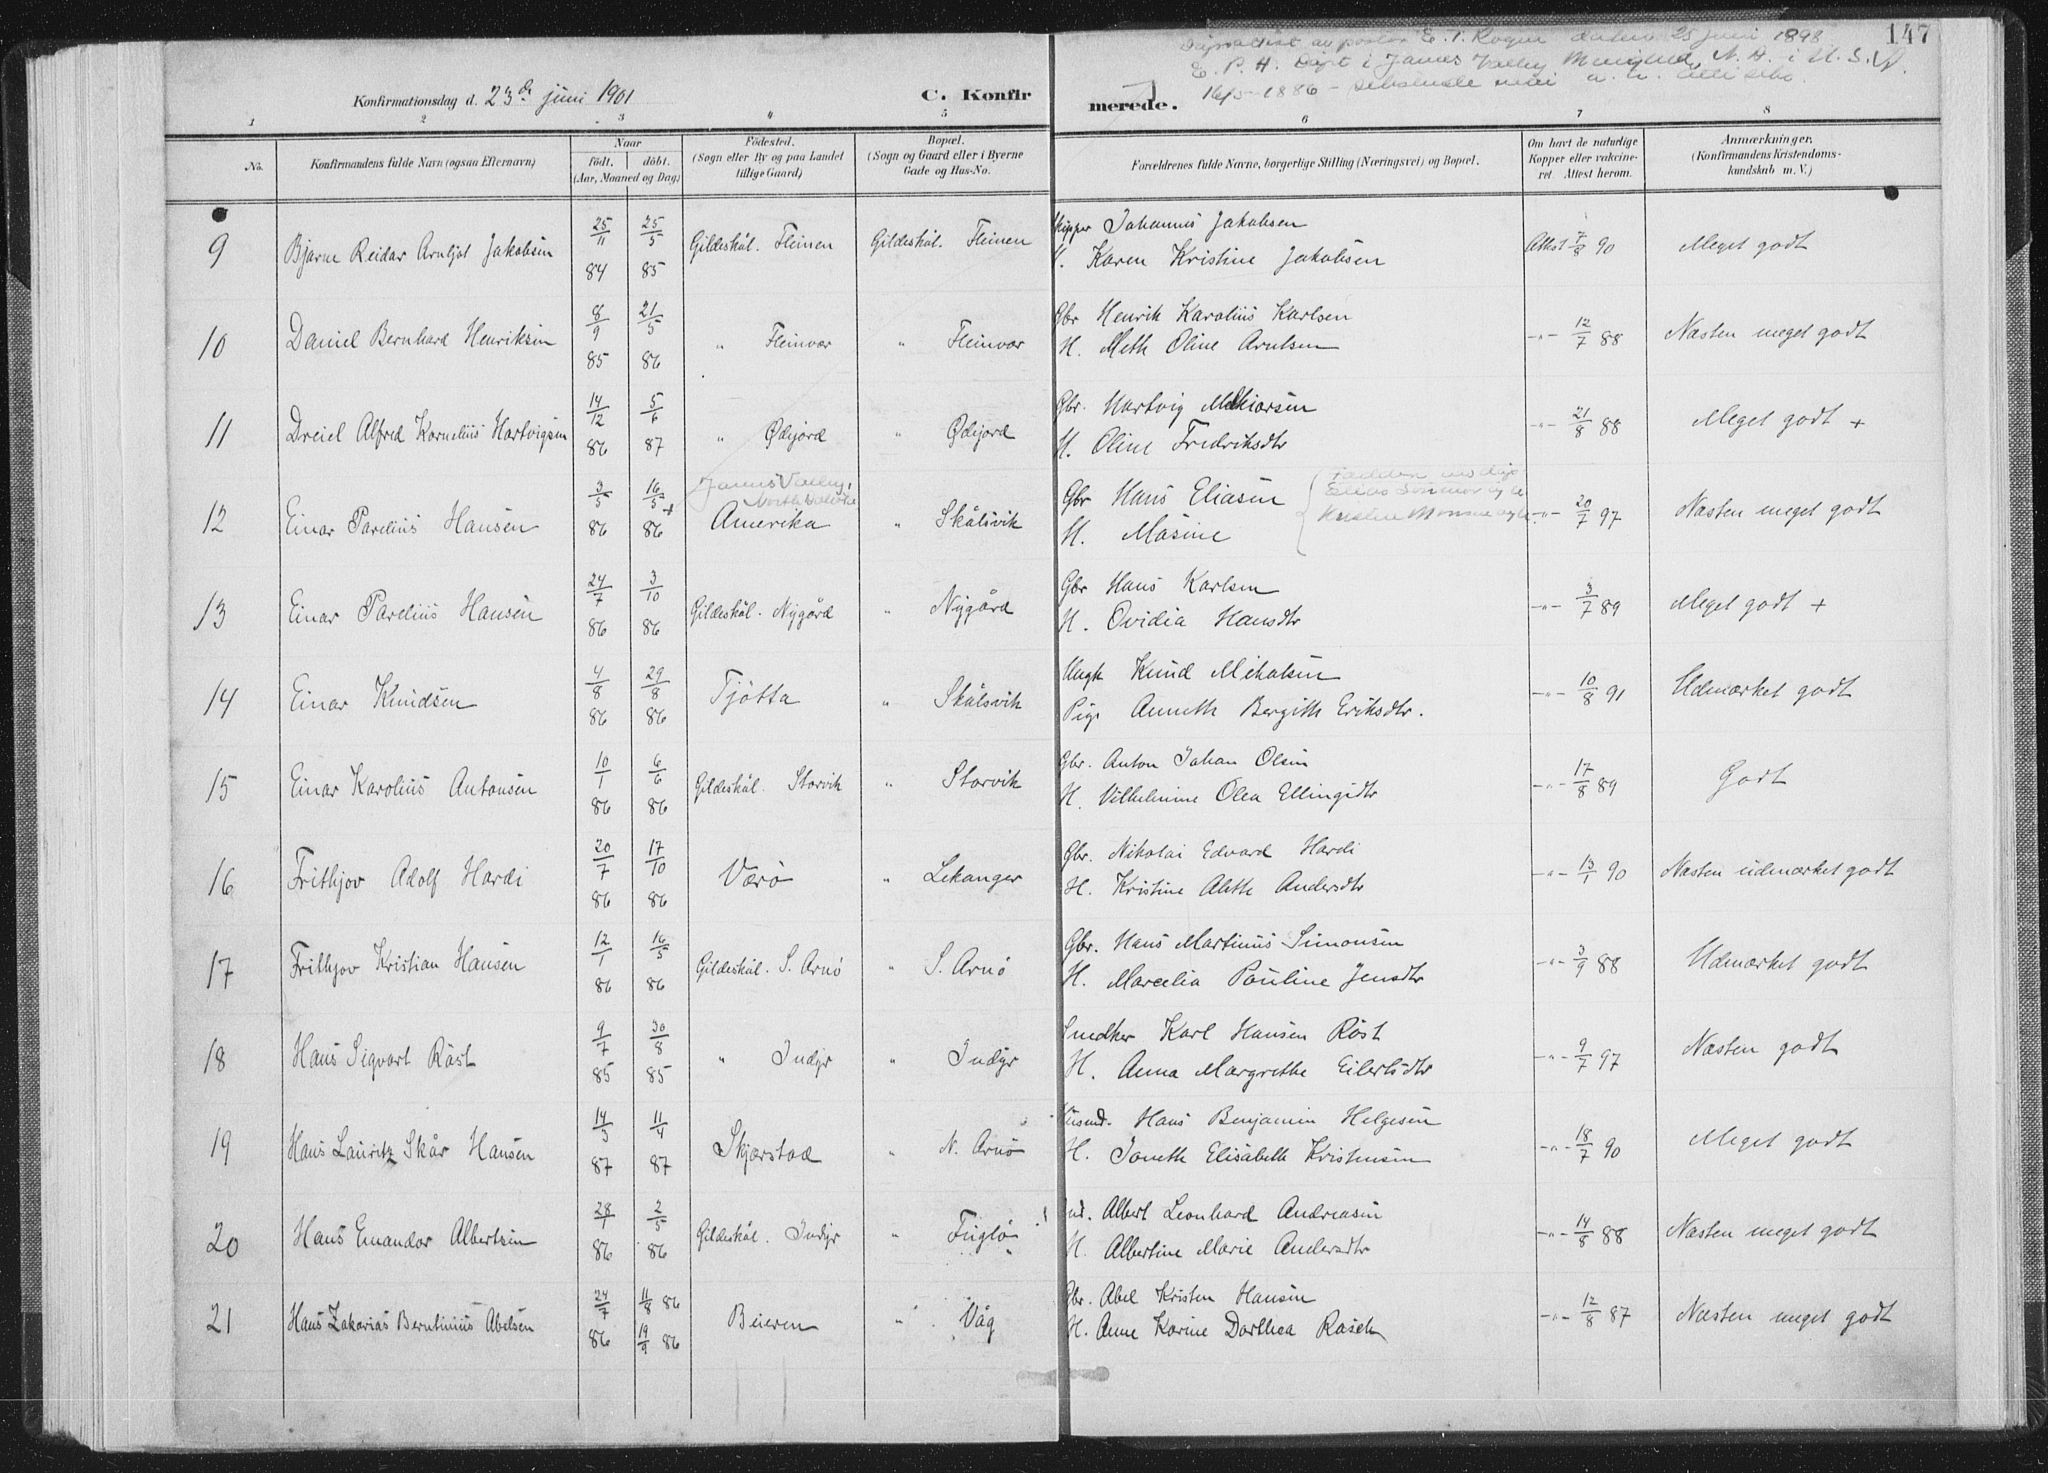 147
Konfirmationsdag d. 23de juni 1901
C. Konfirmerede.
1 2 3 4 5 6 7 8
No.
Konfirmandens fulde Navn (ogsaa Efternavn)
Naar født. døbt. (Aar, Maaned og Dag)
Fødested. (Sogn eller By og paa Landet tillige Gaard)
Bopæl. (Sogn og Gaard eller i Byerne Gade og Hus-No.
Forældrenes fulde Navne, borgerlige Stilling (Næringsvei) og Bopæl.
Om havt de naturlige Kopper eller vakcineret. Attest herom.
Anmærkninger. (Konfirmandens Kristendomskundskab m. V.)
9 Bjarne Reidar Arnljot Jakobsen 25/11 84 25/5 85 Gildeskål. Fleinen Gildeskål. Fleinen Skipper Johannes Jakobsen Attest 7/8 90 Meget godt
H. Karen Kristine Jakobsen
10 Daniel Bernhard Henriksen 8/9 85 21/5 86 " Fleinvær " Fleinvær Gbr Henrik Karolius Karlsen -"- 12/7 88 Næsten meget godt
H. Meth Oline Arntsen
11 Dreiel Alfred Kornelius Hartvigsen 14/12 86 5/6 87 " Ødijord " Ødijord Gbr. Hartvig Mekiorsen -"- 21/8 88 Meget godt +
H. Oline Fredriksdtr
12 Einar Parelius Hansen 3/5 86 16/5 86 + James Valley, North Dakota Amerika " Skålsvik Gbr Hans Eliasen -"- 20/7 97 Næsten meget godt
H. Masine
13 Einar Parelius Hansen 24/7 86 3/10 86 Gildeskål. Nygård " Nygård Gbr Hans Karlsen -"- 3/7 89 Meget godt +
H. Ovidia Hansdtr
14 Einar Knudsen 4/8 86 29/8 86 Tjøtta " Skålsvik Ungk Knud Mikalsen -"- 10/8 91 Udmærket godt
Pige Anneth Bergith Eriksdtr.
15 Einar Karolius Antonsen 10/1 86 6/6 86 Gildeskål. Storvik " Storvik Gbr. Anton Johan Olsen -"- 17/8 89 Godt
H. Vilhelmine Olea Ellingsdtr
16 Frithjov Adolf Hardi 20/7 86 17/10 86 Værø " Lekanger Gbr. Nikolai Edvard Hardi -"- 13/1 90 Næsten udmærket godt
H. Kristine Aleth Andersdtr
17 Frithjov Kristian Hansen 12/1 86 16/5 86 Gildeskål. S. Arnø " S. Arnø Gbr. Hans Martinus Simonsen -"- 3/9 88 Udmærket godt
H. Marcelia Pauline Jensdtr
18 Hans Sigvart Røst 9/7 85 30/8 85 " Indyr " Indyr Snedker Karl Hansen Røst -"- 9/7 97 Næsten godt
H. Anna Margrethe Eilertsdtr
19 Hans Lauritz Skår Hansen 14/3 87 11/4 87 Skjerstad " N. Arnø Husmd. Hans Benjamin Helgesen -"- 18/7 90 Meget godt
H. Joneth Elisabeth Kristensen
20 Hans Emandor Albertsen 28/1 86 2/5 86 Gildeskål. Indyr " Fuglø Ind. Albert Leonhard Andreasen -"- 14/8 88 Næsten meget godt
H. Albertine Marie Andersdtr
21 Hans Zakarias Berntinius Abelsen 24/7 86 11/8 86 19/9 86 Beieren " Våg Gbr. Abel Kristen Hansen -"- 12/8 87 Næsten meget godt
H. Anne Karine Dorthea Rasch